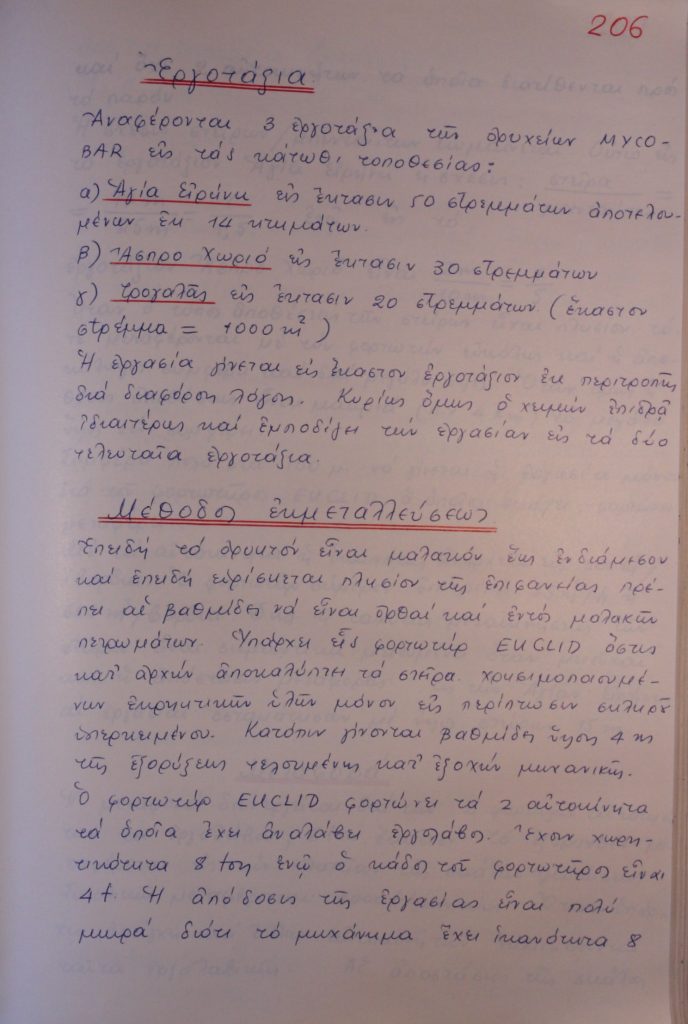 206
Ἐργοτάξια
Ἀναφέρονται 3 ἐργοτάξια τῆς ὀρυχείων MYCO-
BAR εἰς τάς κάτωθι τοποθεσίας:
α) Ἁγία Εἰρήνη εἰς ἔκτασιν 50 στρεμμάτων ἀποτελου-
μένων ἐκ 14 κτημάτων.
β) Ἄσπρο Χωριό εἰς ἔκτασιν 30 στρεμμάτων
γ) Τρογαλᾶς εἰς ἔκτασιν 20 στρεμμάτων (ἕκαστον
στρέμμα = 1000 m²)
Ἡ ἐργασία γίνεται εἰς ἕκαστον ἐργοτάξιον ἐκ περιτροπῆς
διά διαφόρους λόγους. Κυρίως ὅμως ὁ χειμών ἐπιδρᾶ
ἰδιαιτέρως καί ἐμποδίζει τήν ἐργασίαν εἰς τά δύο
τελευταῖα ἐργοτάξια.
Μέθοδος ἐκμεταλλεύσεως
Ἐπειδή τό ὀρυκτόν εἶναι μαλακόν ἕως ἐνδιάμεσον
καί ἐπειδή εὑρίσκεται πλησίον τῆς ἐπιφανείας πρέ-
πει αἱ βαθμίδες νά εἶναι ὀρθαί καί ἐντός μαλακῶν
πετρωμάτων. Ὑπάρχει εἷς φορτωτήρ EUCLID ὅστις
κατ' ἀρχήν ἀποκαλύπτει τά στεῖρα χρησιμοποιουμέ-
νων ἐκρηκτικῶν ὑλῶν μόνον εἰς περίπτωσιν σκληροῦ
ὑπερκειμένου. Κατόπιν γίνονται βαθμίδες ὕψους 4 m
τῆς ἐξορύξεως τελουμένης κατ' ἐξοχήν μηχανικῆς.
Ὁ φορτωτήρ EUCLID φορτώνει τά 2 αὐτοκίνητα
τά ὁποῖα ἔχει ἀναλάβει ἐργολάβος. Ἔχουν χωρη-
τικότητα 8 ton ἐνῷ ὁ κάδος τοῦ φορτωτῆρος εἶναι
4 t. Ἡ ἀπόδοσις τῆς ἐργασίας εἶναι πολύ
μικρά διότι τό μηχάνημα ἔχει ἱκανότητα 8